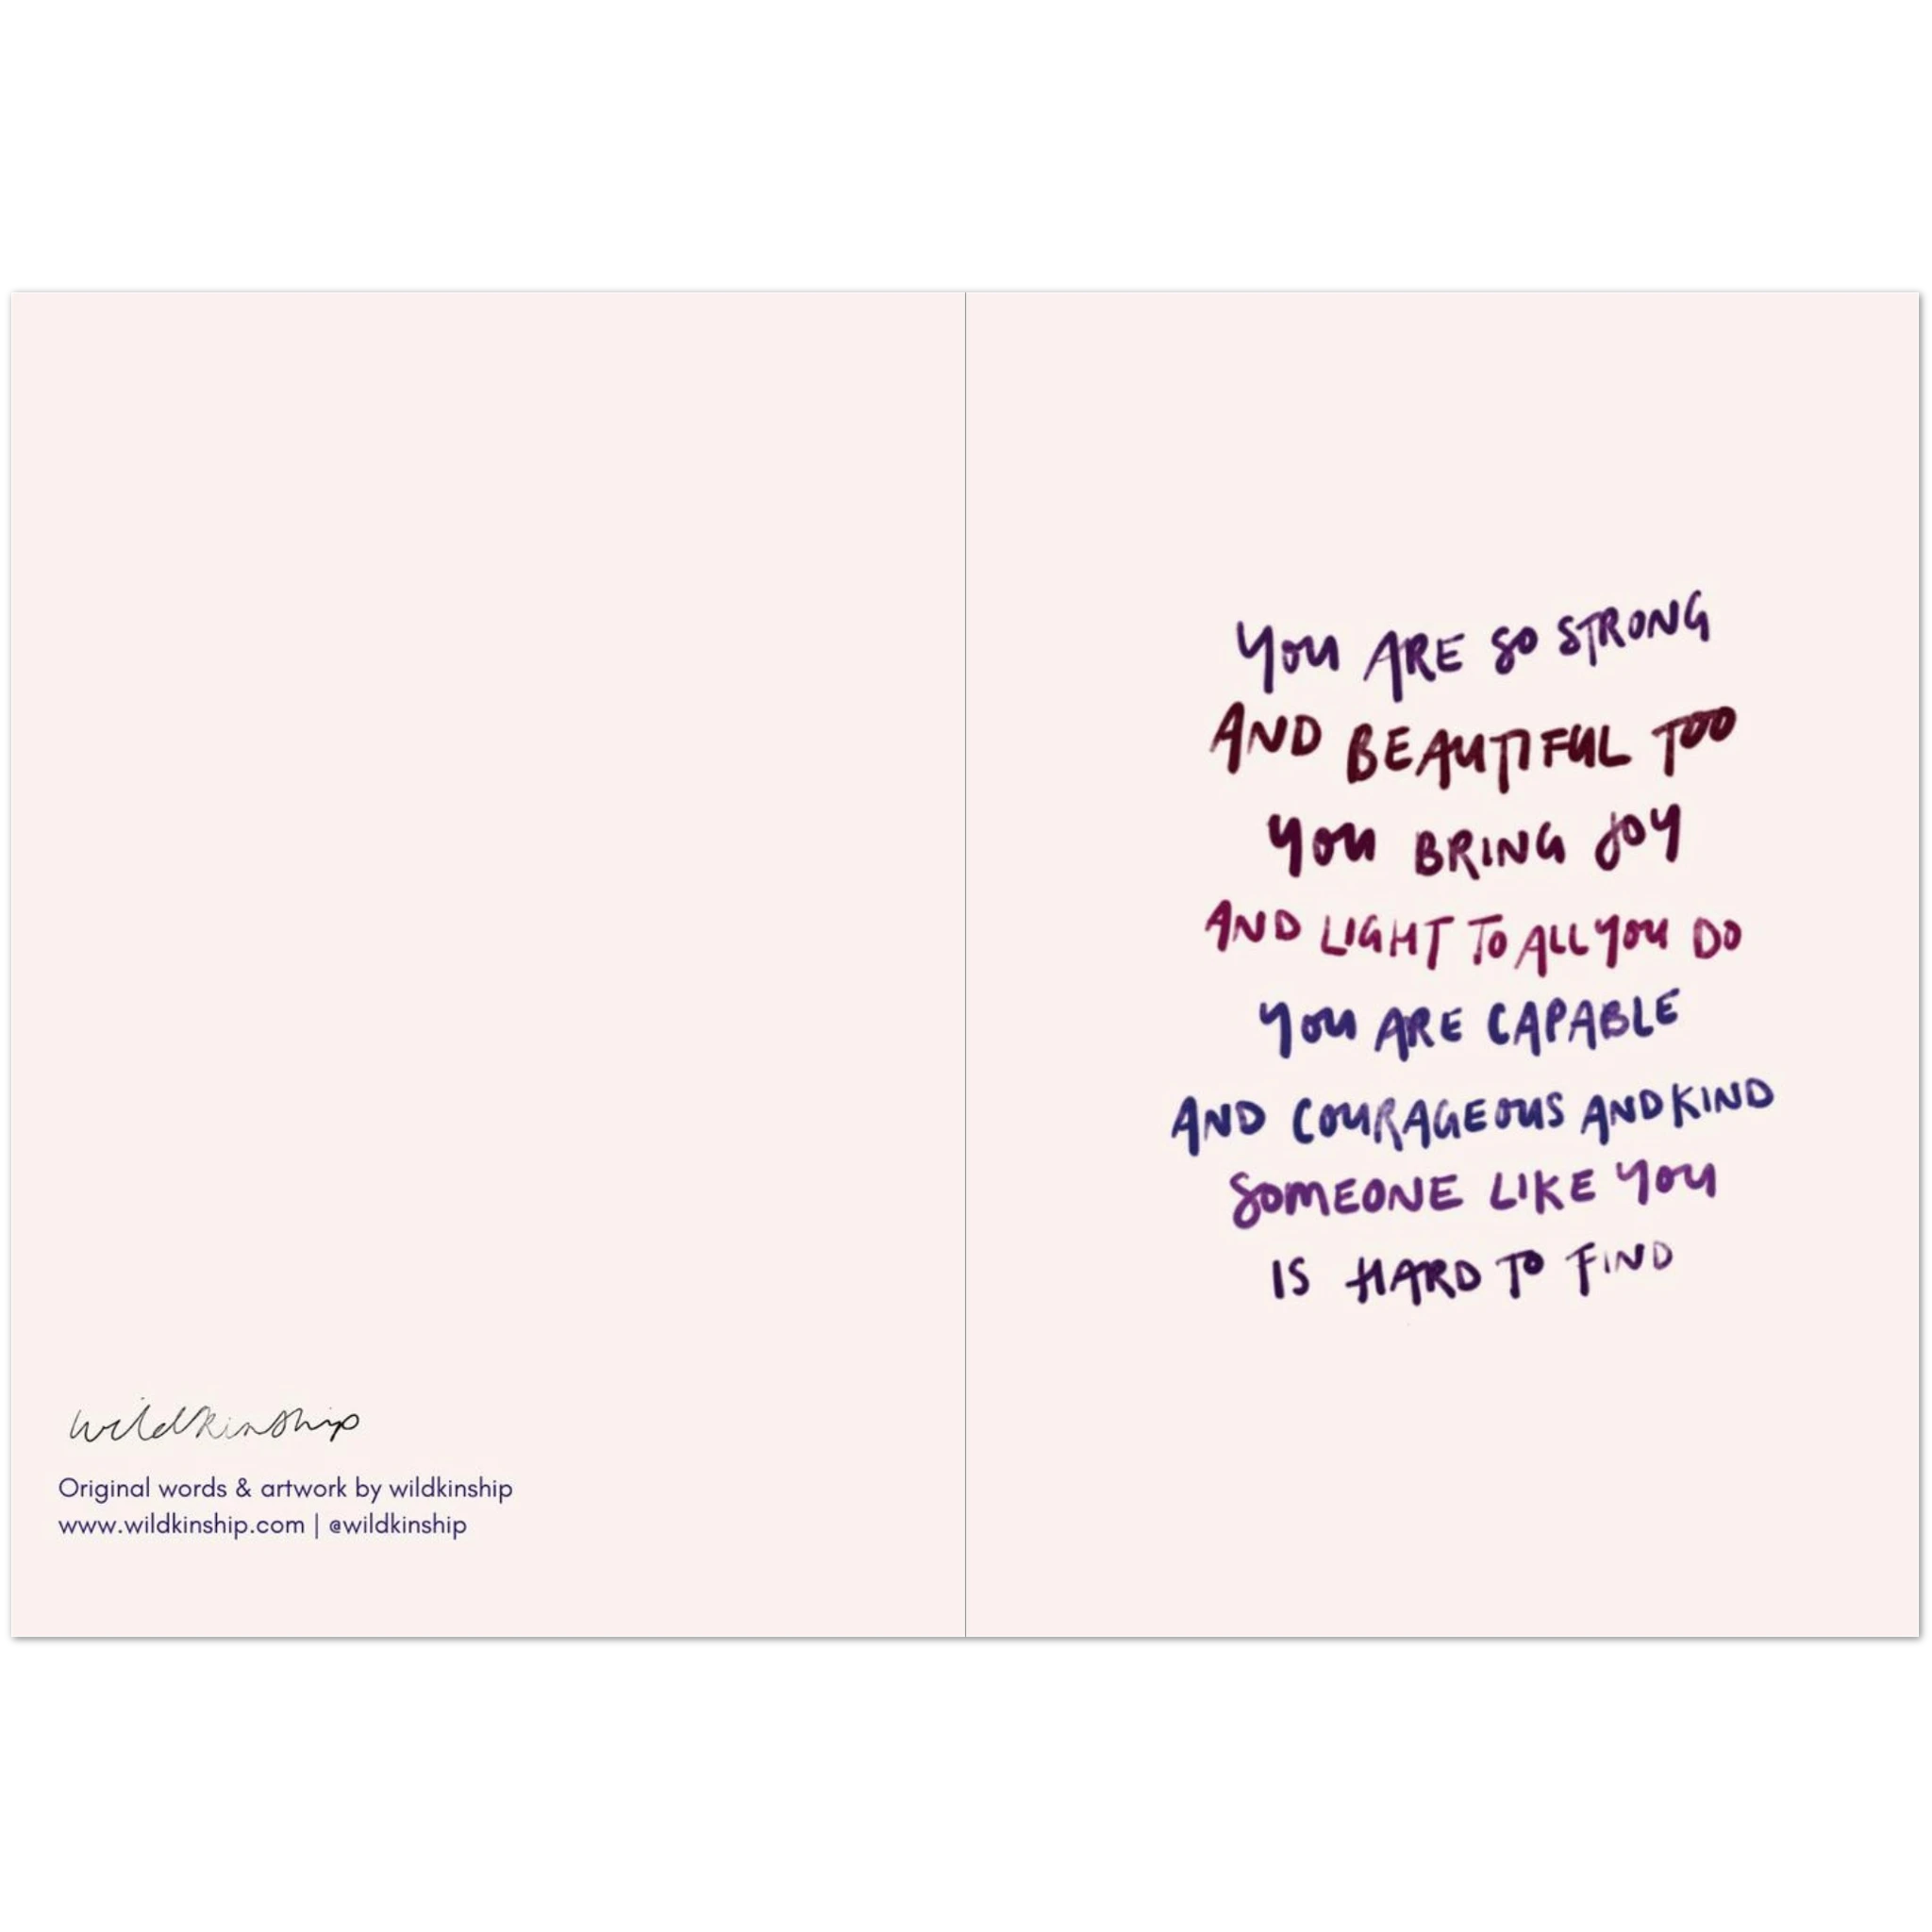 wildkinship
Original words & artwork by wildkinship
www.wildkinship.com | @wildkinship
YOU ARE SO STRONG
AND BEAUTIFUL TOO
YOU BRING JOY
AND LIGHT TO ALL YOU DO
YOU ARE CAPABLE
AND COURAGEOUS AND KIND
SOMEONE LIKE YOU
IS HARD TO FIND